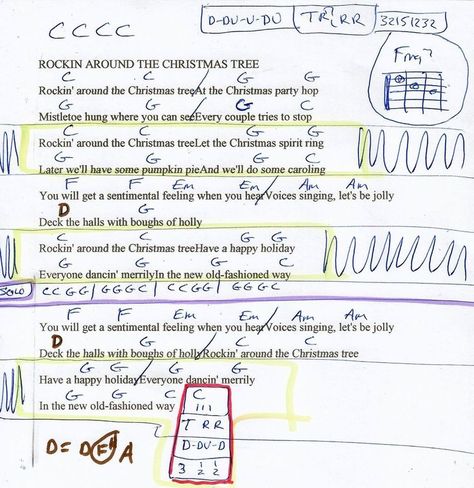 C C C C
D-DU-U-DU TR?RR 32151232
ROCKIN AROUND THE CHRISTMAS TREE
C C G G
Rockin' around the Christmas tree/At the Christmas party hop
G G G C
Mistletoe hung where you can see/Every couple tries to stop
C C G G
Rockin' around the Christmas treeLet the Christmas spirit ring
G G G C
Later we'll have some pumpkin pieAnd we'll do some caroling
F F Em Em Am Am
You will get a sentimental feeling when you hear/Voices singing, let's be jolly
D G
Deck the halls with boughs of holly
C C G G
Rockin' around the Christmas treeHave a happy holiday
G G G C
Everyone dancin' merrilyIn the new old-fashioned way
SOLO CCGG/GGGC/CCGG/GGGC
F F Em Em Am Am
You will get a sentimental feeling when you hear/Voices singing, let's be jolly
D G C C
Deck the halls with boughs of holly/Rockin' around the Christmas tree
G G G
Have a happy holiday/Everyone dancin' merrily
G G C C
In the new old-fashioned way
T RR
D-DU-D
3 1/2 1/2
D = D F# A